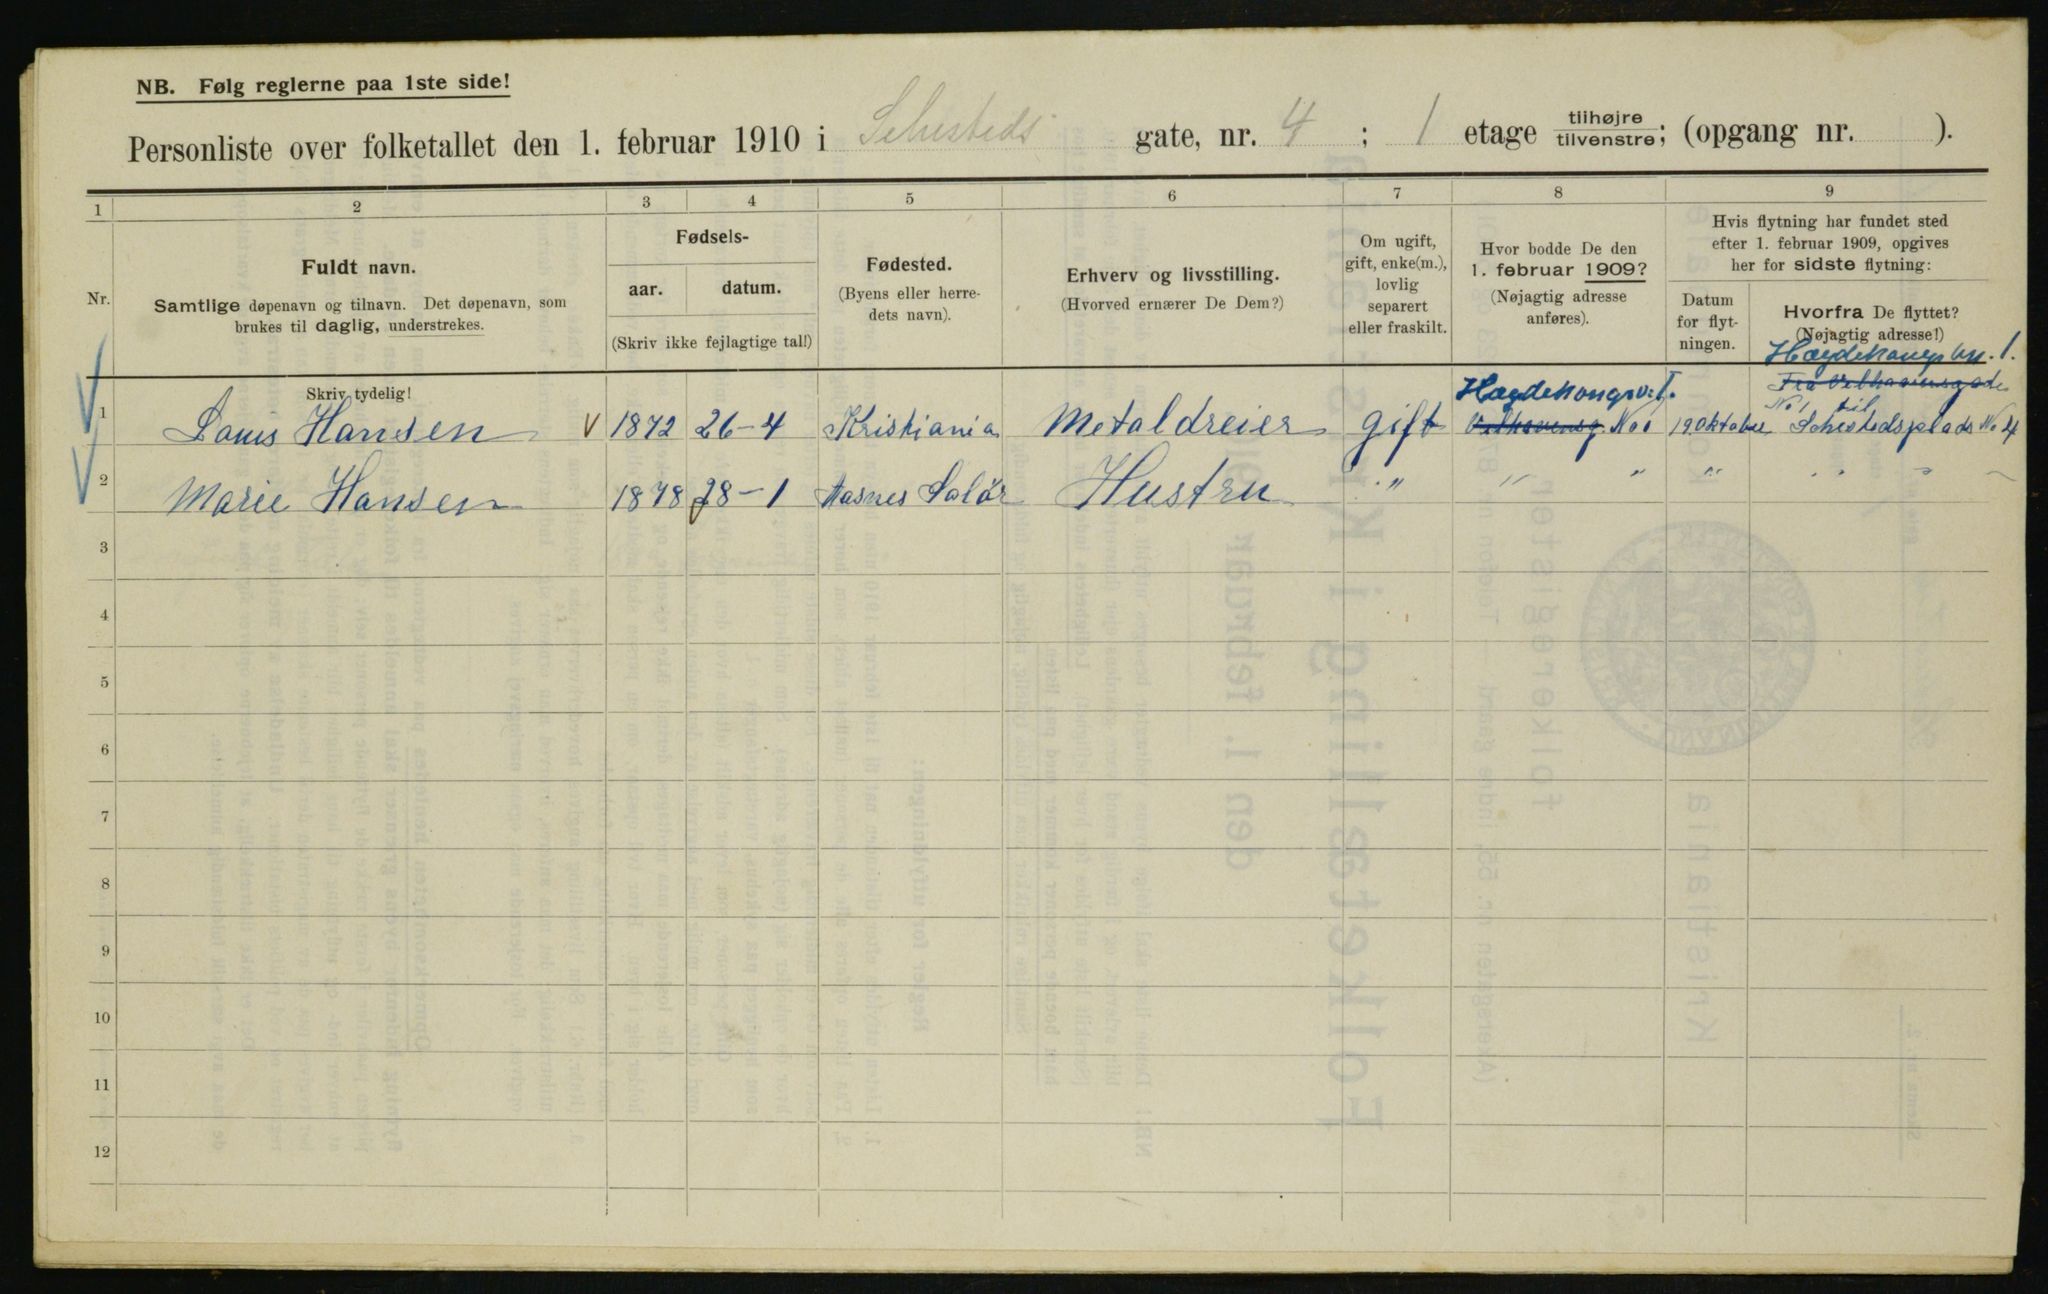 NB. Følg reglerne paa 1ste side!
Personliste over folketallet den 1. februar 1910 i Sehesteds gate, nr. 4 ; 1 etage tilhøjre tilvenstre; (opgang nr. ).
1 2 3 4 5 6 7 8 9
Nr.
Fuldt navn.
Samtlige døpenavn og tilnavn. Det døpenavn, som
brukes til daglig, understrekes.
Fødsels-
aar. datum.
(Skriv ikke fejlagtige tal!)
Fødested.
(Byens eller herre-
dets navn).
Erhverv og livsstilling.
(Hvorved ernærer De Dem?)
Om ugift,
gift, enke(m.),
lovlig
separert
eller fraskilt.
Hvor bodde De den
1. februar 1909?
(Nøjagtig adresse
anføres).
Hvis flytning har fundet sted
efter 1. februar 1909, opgives
her for sidste flytning:
Datum
for flyt-
ningen.
Hvorfra De flyttet?
(Nøjagtig adresse!)
Skriv tydelig!
Hægdehaugsv. 1.
Hægdehaugsv. 1.
Fra Velhavensgade
No 1 til
1 Louis Hansen V 1872 26-4 Kristiania Metaldreier gift Velhavensg. No 1 19 Oktober Sehestedsplads No 4
2 Marie Hansen 1878 28-1 Aasnes Solør Hustru " " " " " "
3
4
5
6
7
8
9
10
11
12